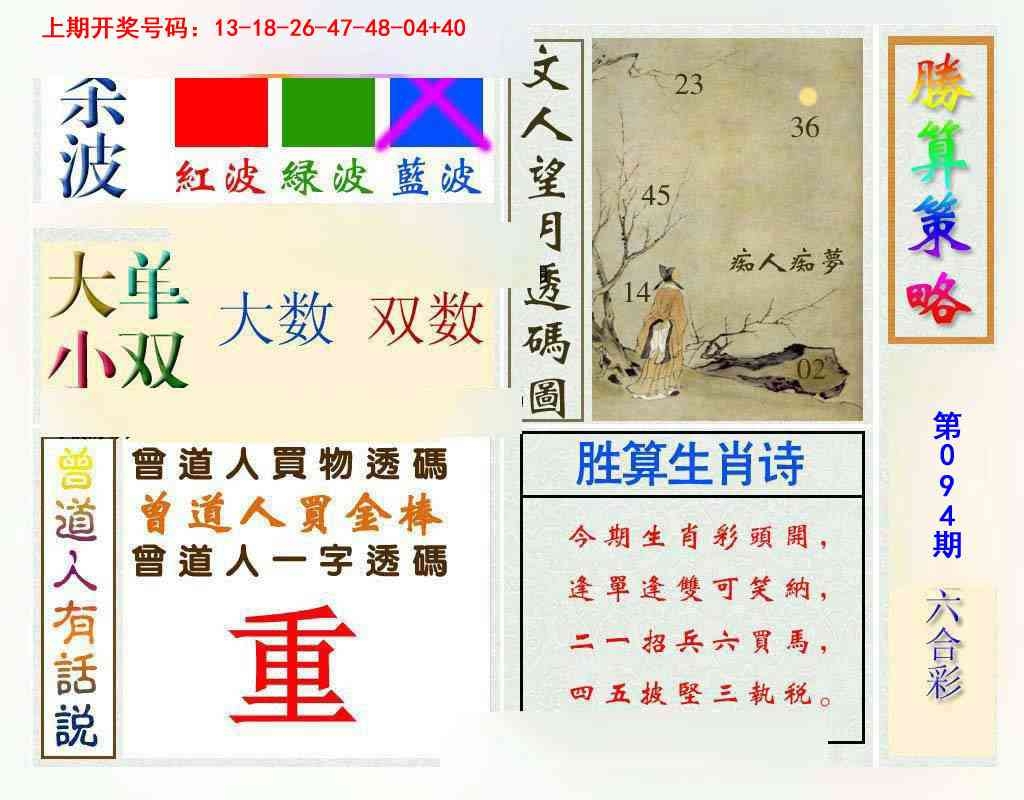 上期开奖号码：13-18-26-47-48-04+40
杀波
紅波 緑波 藍波
大单
小双
大数 双数
文人望月透碼圖
23
36
45
痴人痴夢
14
02
勝算策略
第094期
六合彩
曾道人有話説
曾道人買物透碼
曾道人買金棒
曾道人一字透碼
重
胜算生肖诗
今期生肖彩頭開，
逢單逢雙可笑納，
二一招兵六買馬，
四五披堅三執税。